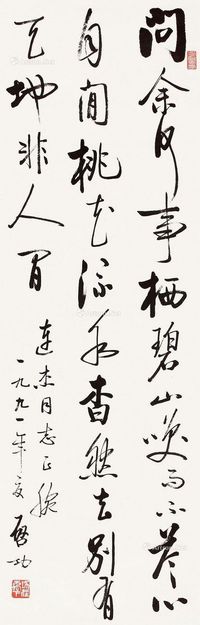 問余何事栖碧山笑而不答心
自闲桃花流水杳然去别有
天地非人间
连杰同志正腕
一九九一年夏 启功